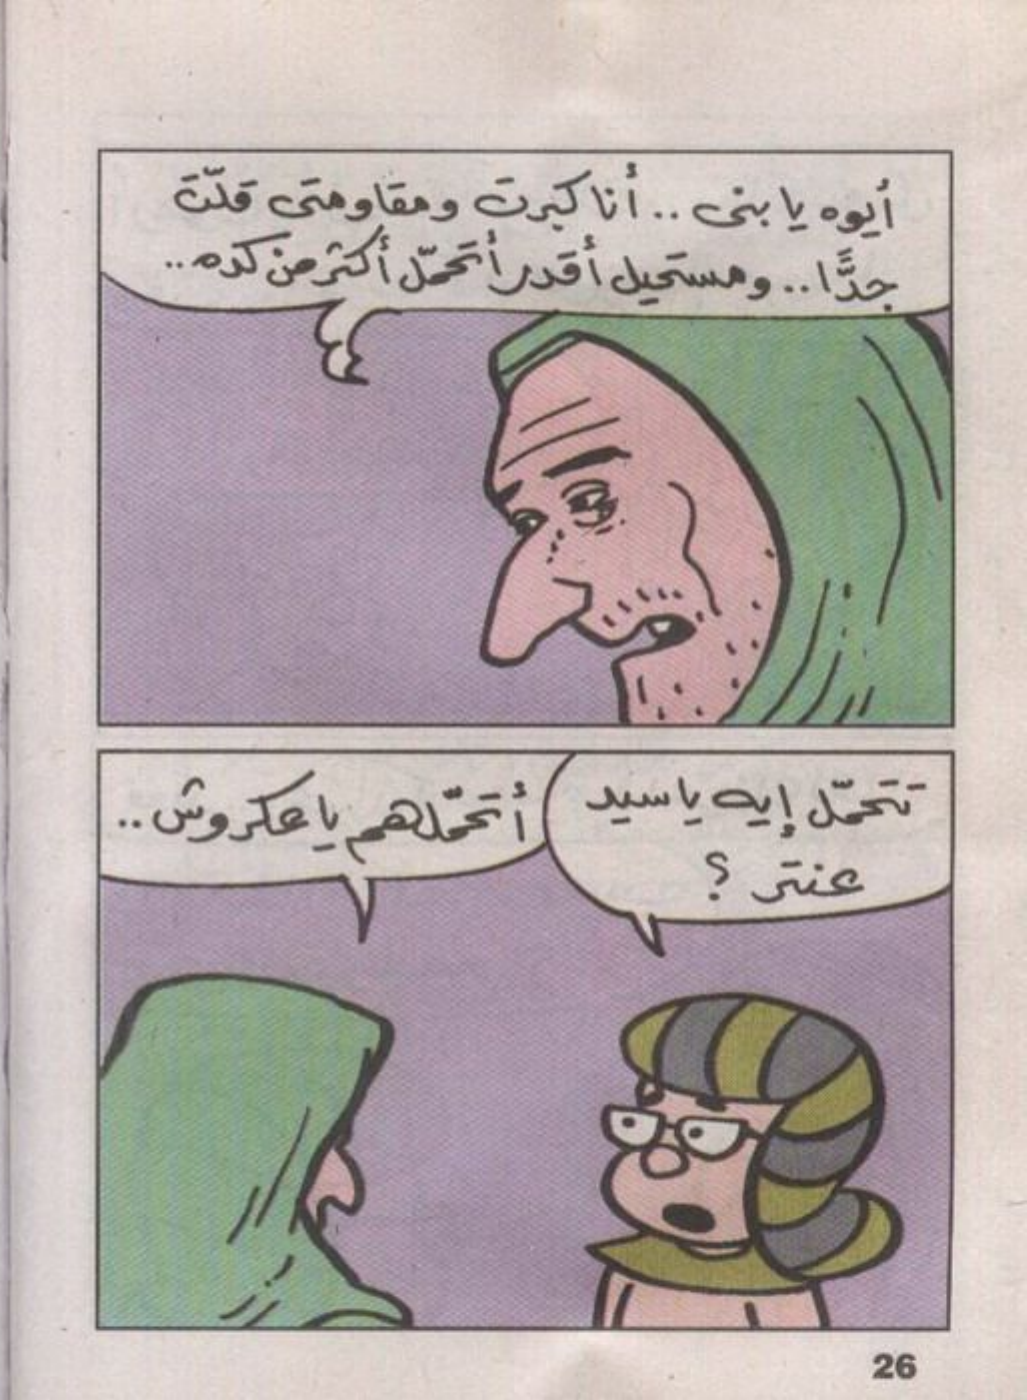 أيوه يا بنى .. أنا كبرت ومقاومتى قلّت
جدًّا .. ومستحيل أقدر أتحمّل أكتر من كده ..
تتحمّل إيه يا سيد
عنتر ؟
أتحمّلهم يا عكروش ..
26